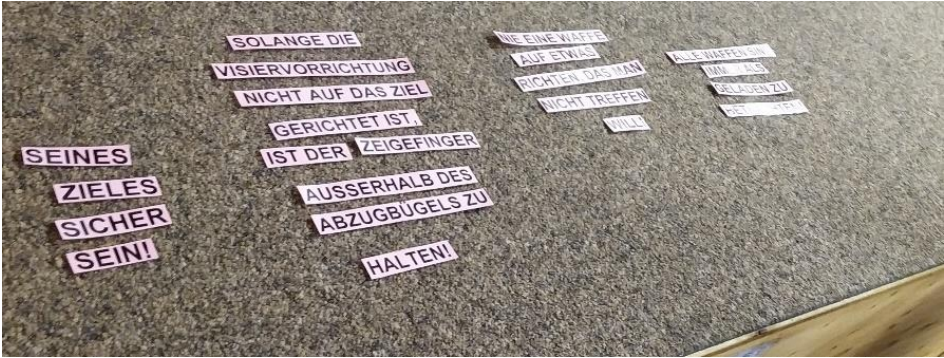 SEINES
ZIELES
SICHER
SEIN!
SOLANGE DIE
VISIERVORRICHTUNG
NICHT AUF DAS ZIEL
GERICHTET IST,
IST DER ZEIGEFINGER
AUSSERHALB DES
ABZUGBÜGELS ZU
HALTEN!
NIE EINE WAFFE
AUF ETWAS
RICHTEN, DAS MAN
NICHT TREFFEN
WILL!
ALLE WAFFEN
ALS
GELADEN ZU